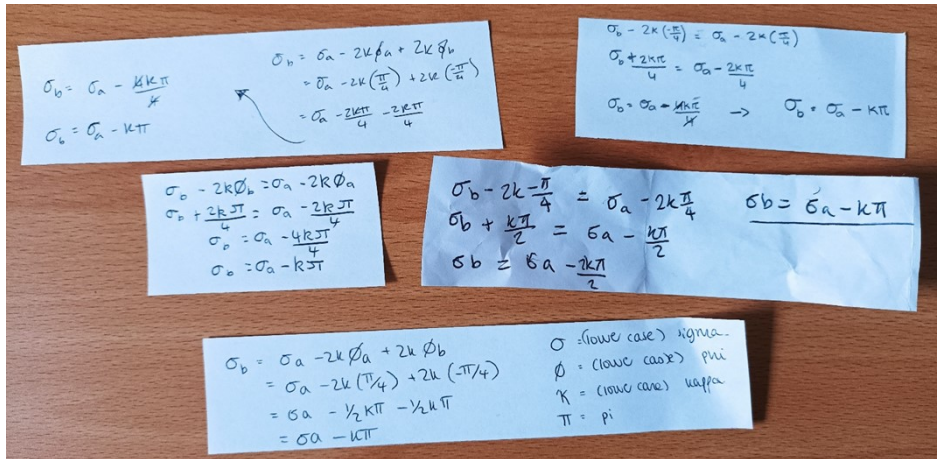 σb = σa - 4kπ/4
σb = σa - kπ
σb = σa - 2kφa + 2kφb
= σa - 2k(π/4) + 2k(-π/4)
= σa - 2kπ/4 - 2kπ/4
σb - 2k(-π/4) = σa - 2k(π/4)
σb + 2kπ/4 = σa - 2kπ/4
σb = σa - 4kπ/4 → σb = σa - kπ
σb - 2kφb = σa - 2kφa
σb + 2kπ/4 = σa - 2kπ/4
σb = σa - 4kπ/4
σb = σa - kπ
σb - 2k -π/4 = σa - 2k π/4
σb + kπ/2 = σa - kπ/2
σb = σa - 2kπ/2
σb = σa - kπ
σb = σa - 2kφa + 2kφb
= σa - 2k(π/4) + 2k(-π/4)
= σa - 1/2 kπ - 1/2 kπ
= σa - kπ
σ = (lowe case) sigma
φ = (lowe case) phi
κ = (lowe case) kappa
π = pi